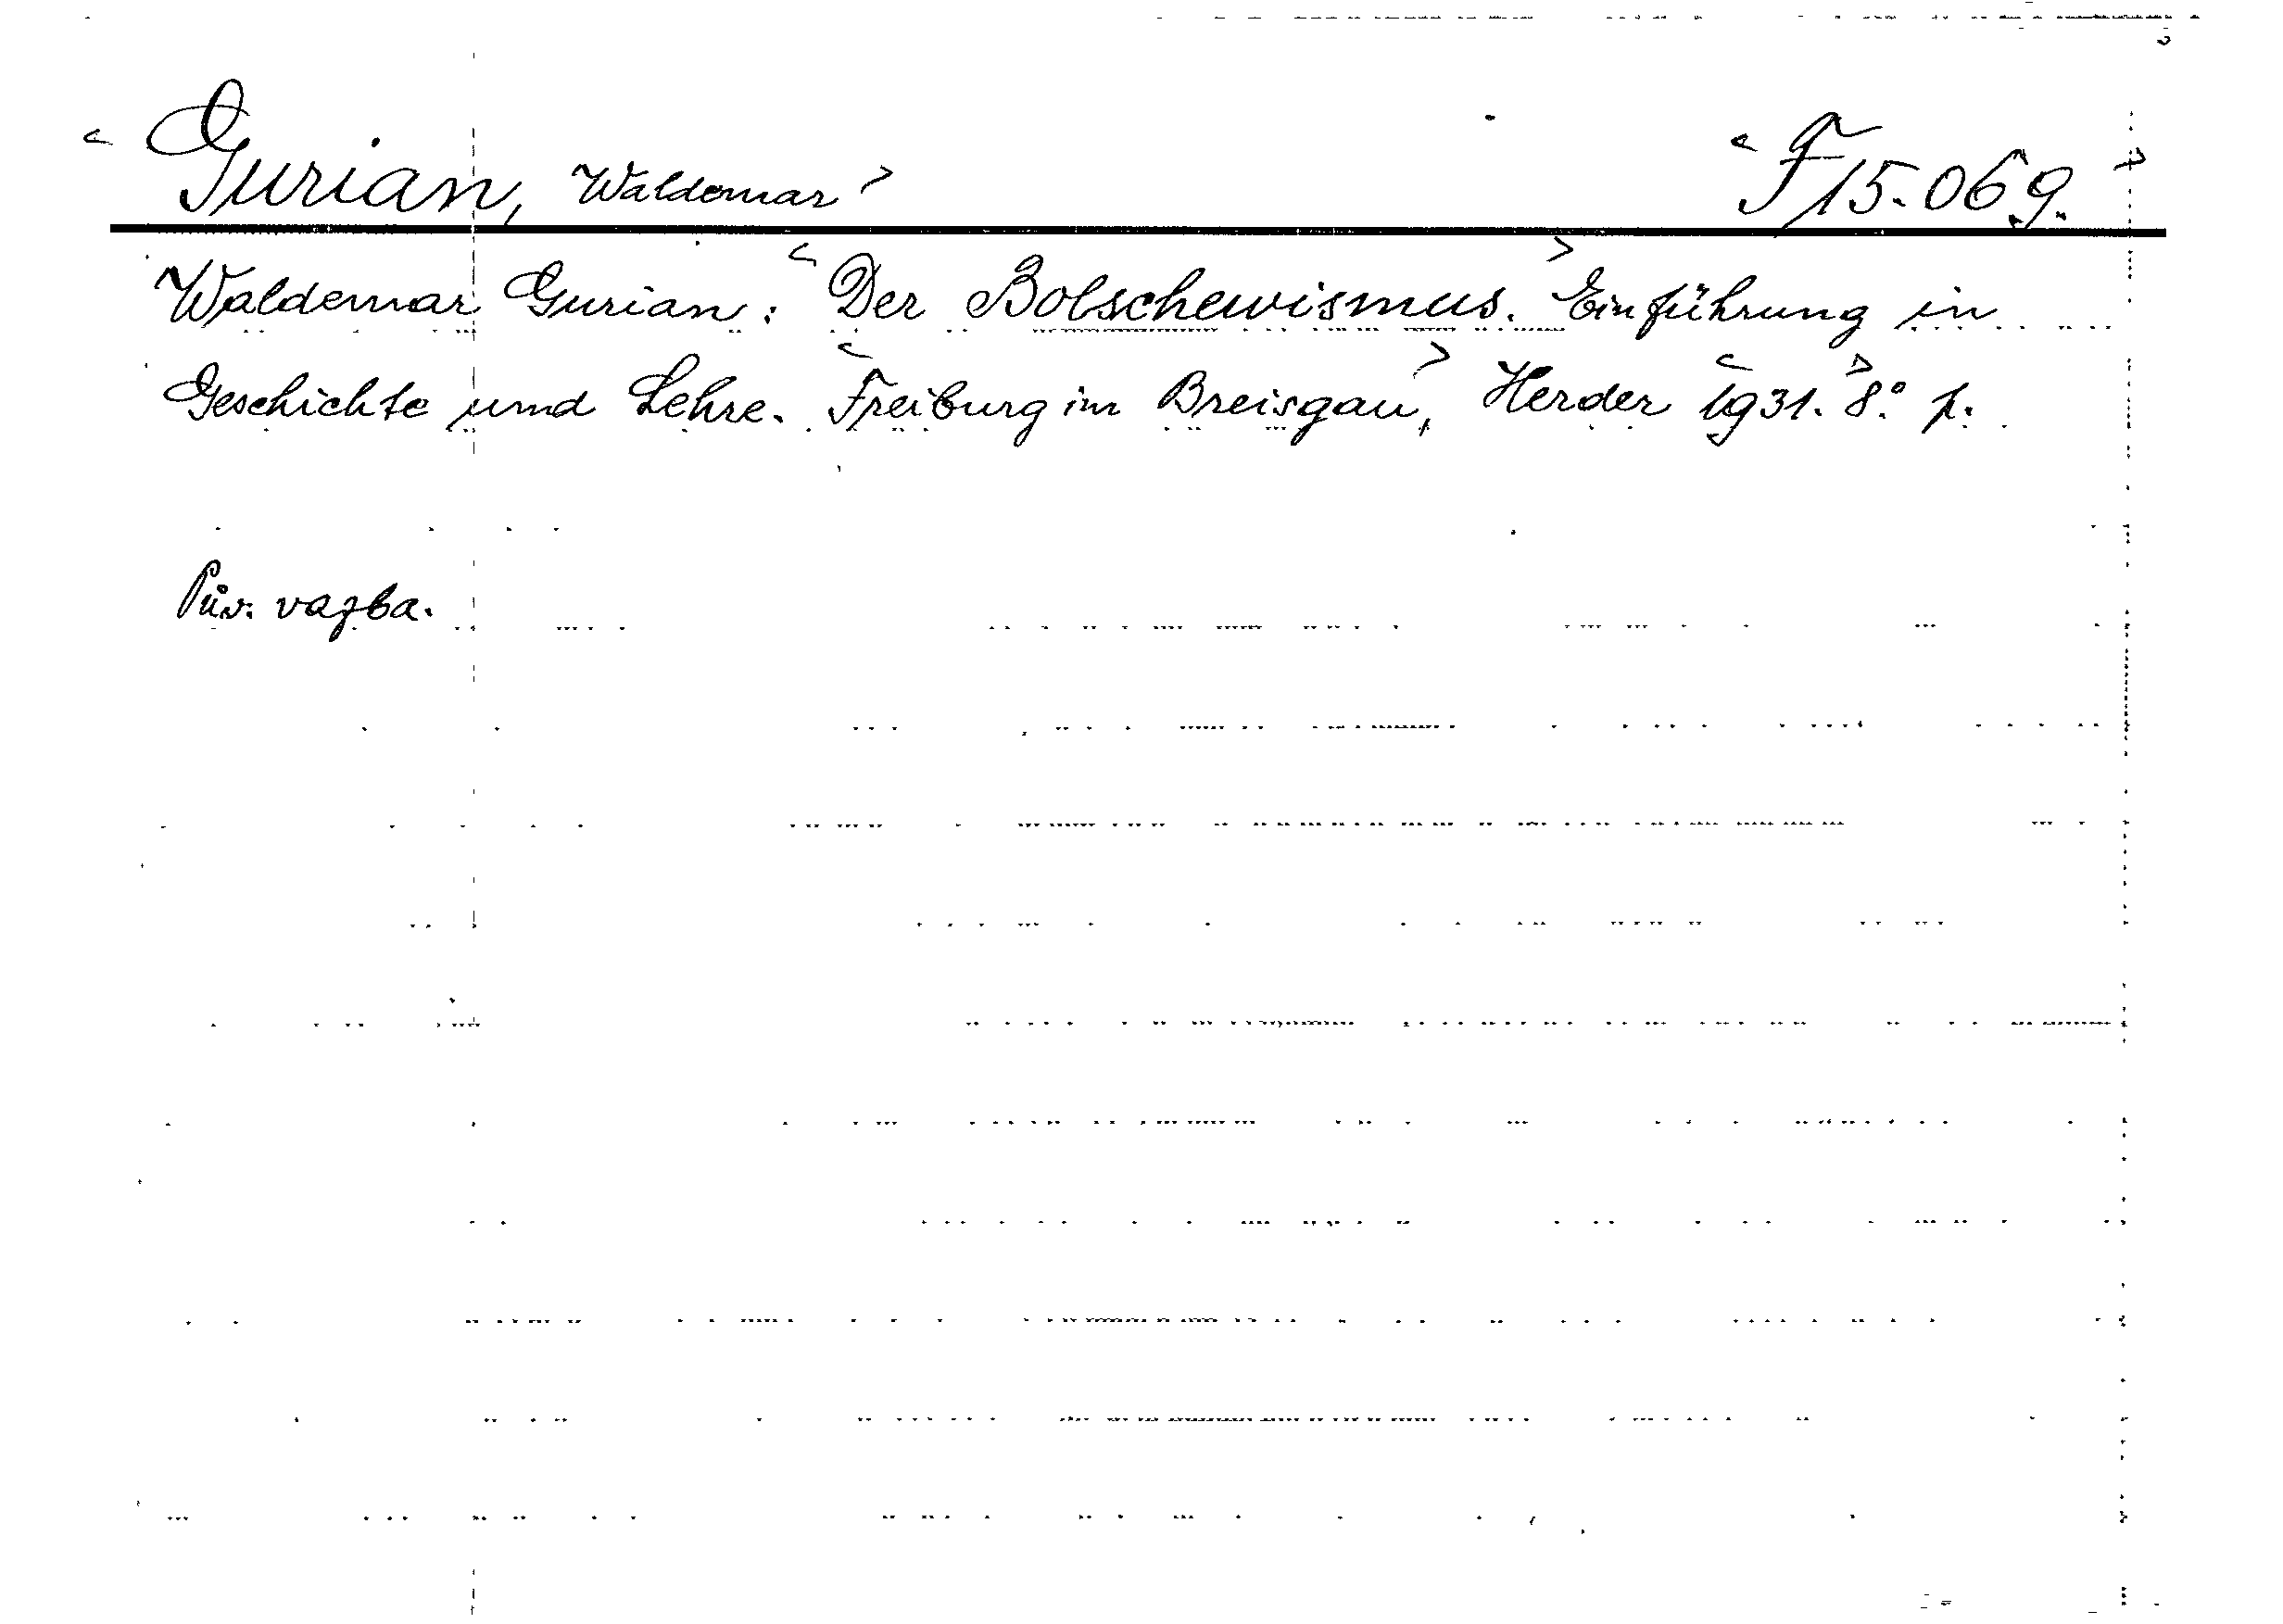 < Gurian, Waldemar > < F 15.069. >
Waldemar Gurian: < Der Bolschewismus. > Einführung in
Geschichte und Lehre. < Freiburg im Breisgau, > Herder < 1931. > 8.° p.
Pův. vazba.